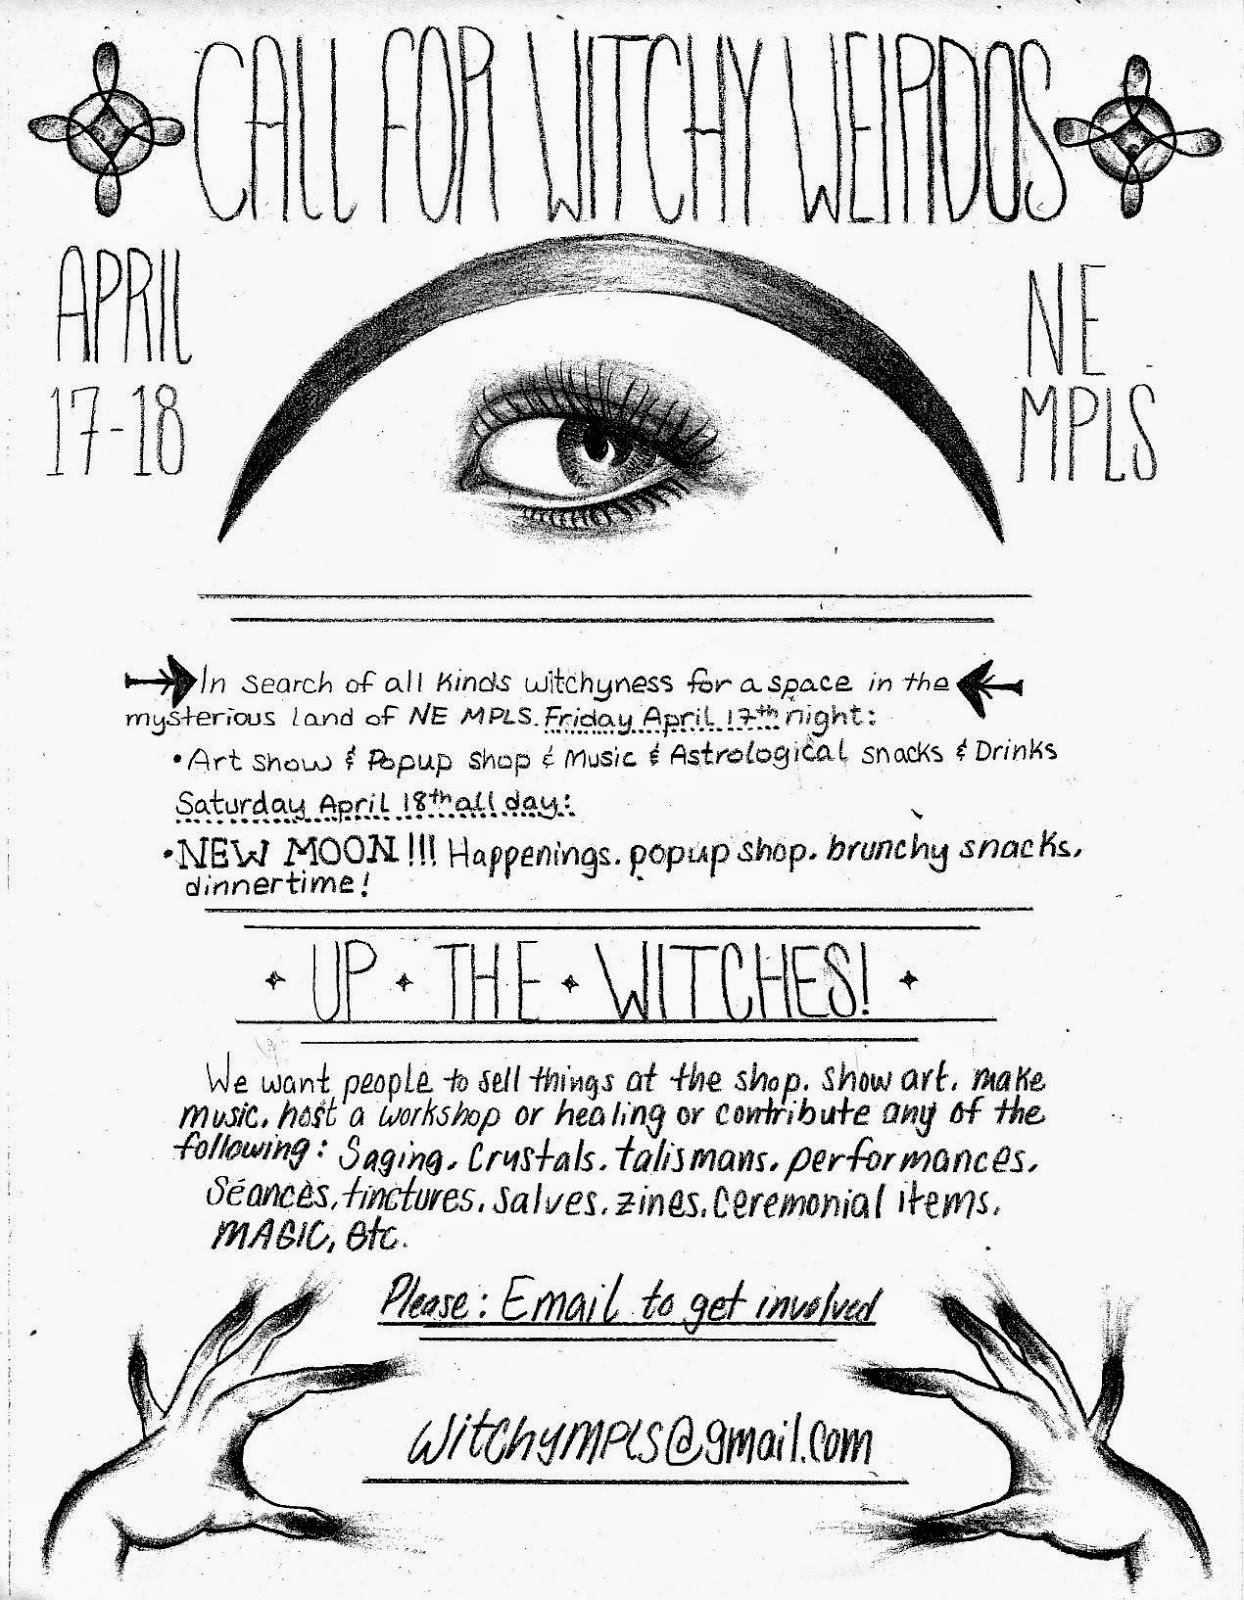 CALL FOR WITCHY WEIRDOS
APRIL
17-18
NE
MPLS
In search of all kinds witchyness for a space in the
mysterious land of NE MPLS. Friday April 17th night:
• Art show & Popup shop & Music & Astrological snacks & Drinks
Saturday April 18th all day:
• NEW MOON!!! Happenings. popup shop. brunchy snacks.
dinnertime!
UP • THE • WITCHES!
We want people to sell things at the shop. show art. make
music. host a workshop or healing or contribute any of the
following: Saging. Crystals. talismans. performances.
Séances, tinctures. salves. zines. ceremonial items.
MAGIC, etc.
Please: Email to get involved
witchympls@gmail.com